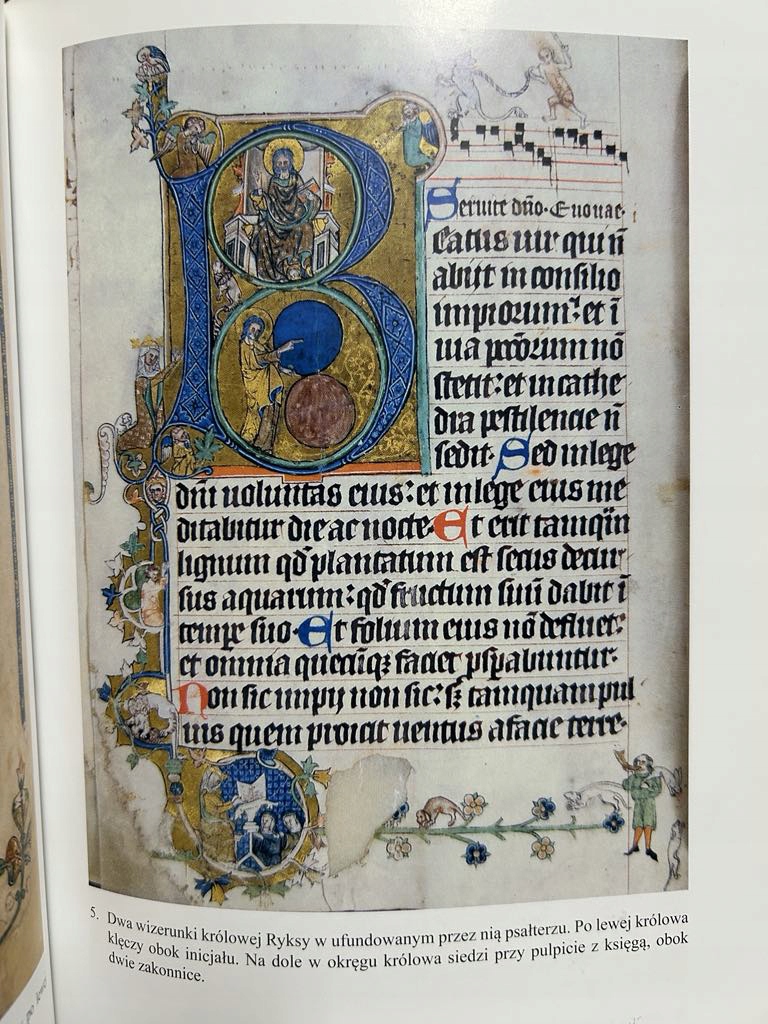 Seruite dño. Euouae.
Eatus uir qui ñ
abijt in consilio
impiorum: et ĩ
uia pccõrum nõ
stetit: et in cathe
dra pestilencie ñ
sedit. Sed in lege
dñi uoluntas eius: et in lege eius me
ditabitur die ac nocte. Et erit tamq̃m
lignum qd̾ plantatum est secus decur
sus aquarum: qd̾ fructum suũ dabit ĩ
temp̱e suo. Et folium eius nõ defluet:
et omnia quecũqꝫ faciet psp̱abuntur.
Non sic impij non sic: sꝫ tamquam pul
uis quem proicit uentus a facie terre.
5. Dwa wizerunki królowej Ryksy w ufundowanym przez nią psałterzu. Po lewej królowa
klęczy obok inicjału. Na dole w okręgu królowa siedzi przy pulpicie z księgą, obok
dwie zakonnice.